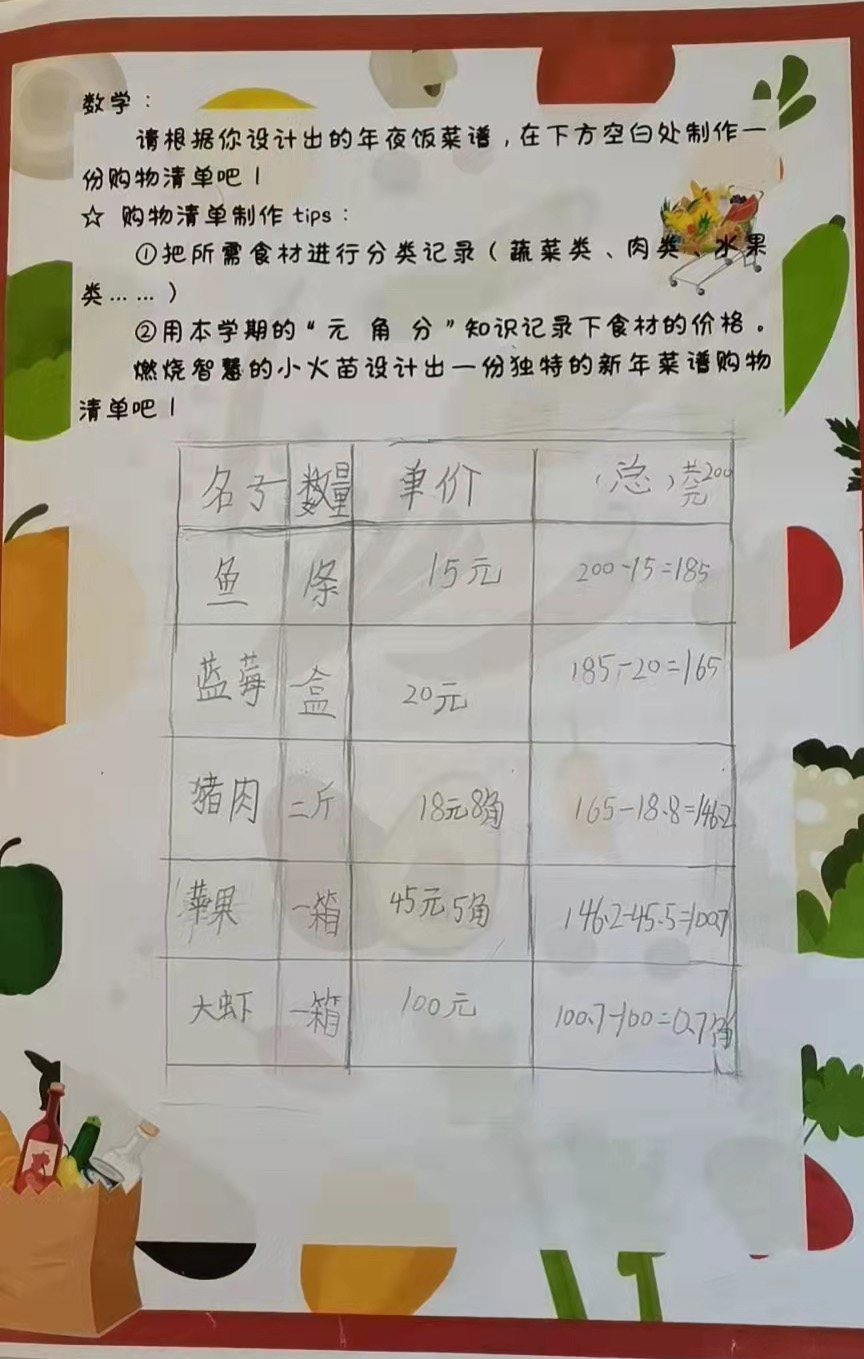 数学：
请根据你设计出的年夜饭菜谱，在下方空白处制作一
份购物清单吧！
☆ 购物清单制作 tips：
①把所需食材进行分类记录（蔬菜类、肉类、水果
类……）
②用本学期的“元 角 分”知识记录下食材的价格。
燃烧智慧的小火苗设计出一份独特的新年菜谱购物
清单吧！
名子 数量 单价 （总）共200元
鱼 条 15元 200-15=185
蓝莓 盒 20元 185-20=165
猪肉 二斤 18元8角 165-18.8=146.2
苹果 一箱 45元5角 146.2-45.5=100.7
大虾 一箱 100元 100.7-100=0.7角